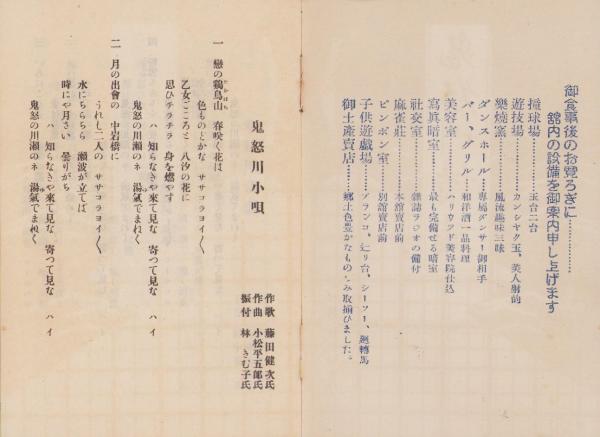 御食事後のお寛ろぎに…………
館内の設備を御案内申し上げます
撞球場………玉台二台
遊技場………カンシヤク玉、美人射的
樂燒窯………風流趣味三昧
ダンスホール………専属ダンサー御相手
バー、グリル………和洋酒一品料理
美容室………ハリウツド美容院仕込
寫眞暗室………最も完備せる暗室
社交室………雜誌ラヂオの備付
麻雀莊………本館賣店前
ピンポン室………別館賣店前
子供遊戯場………ブランコ、辷り台、シーソー、廻轉馬
御土産賣店………鄕土色豊かなものゝみ取揃ひました。
鬼怒川小唄
作歌 藤田健次氏
作曲 小松平五郎氏
振付 林きむ子氏
一 戀の鶏鳥山 春咲く花は
色もとりどな ササコラヨイ〳〵
乙女ごころと 八汐の花に
思ひチラチラ 身を燃やす
ハ 知らなきや來て見な 寄つて見な ハイ
鬼怒の川瀬のネ 湯氣でまねく
二 月の出會の 中岩橋に
うれし二人の ササコラヨイ〳〵
水にちらちら 瀬波が立てば
時にや月さい 曇りがち
ハ 知らなきや來て見な 寄つて見な ハイ
鬼怒の川瀬のネ 湯氣でまねく